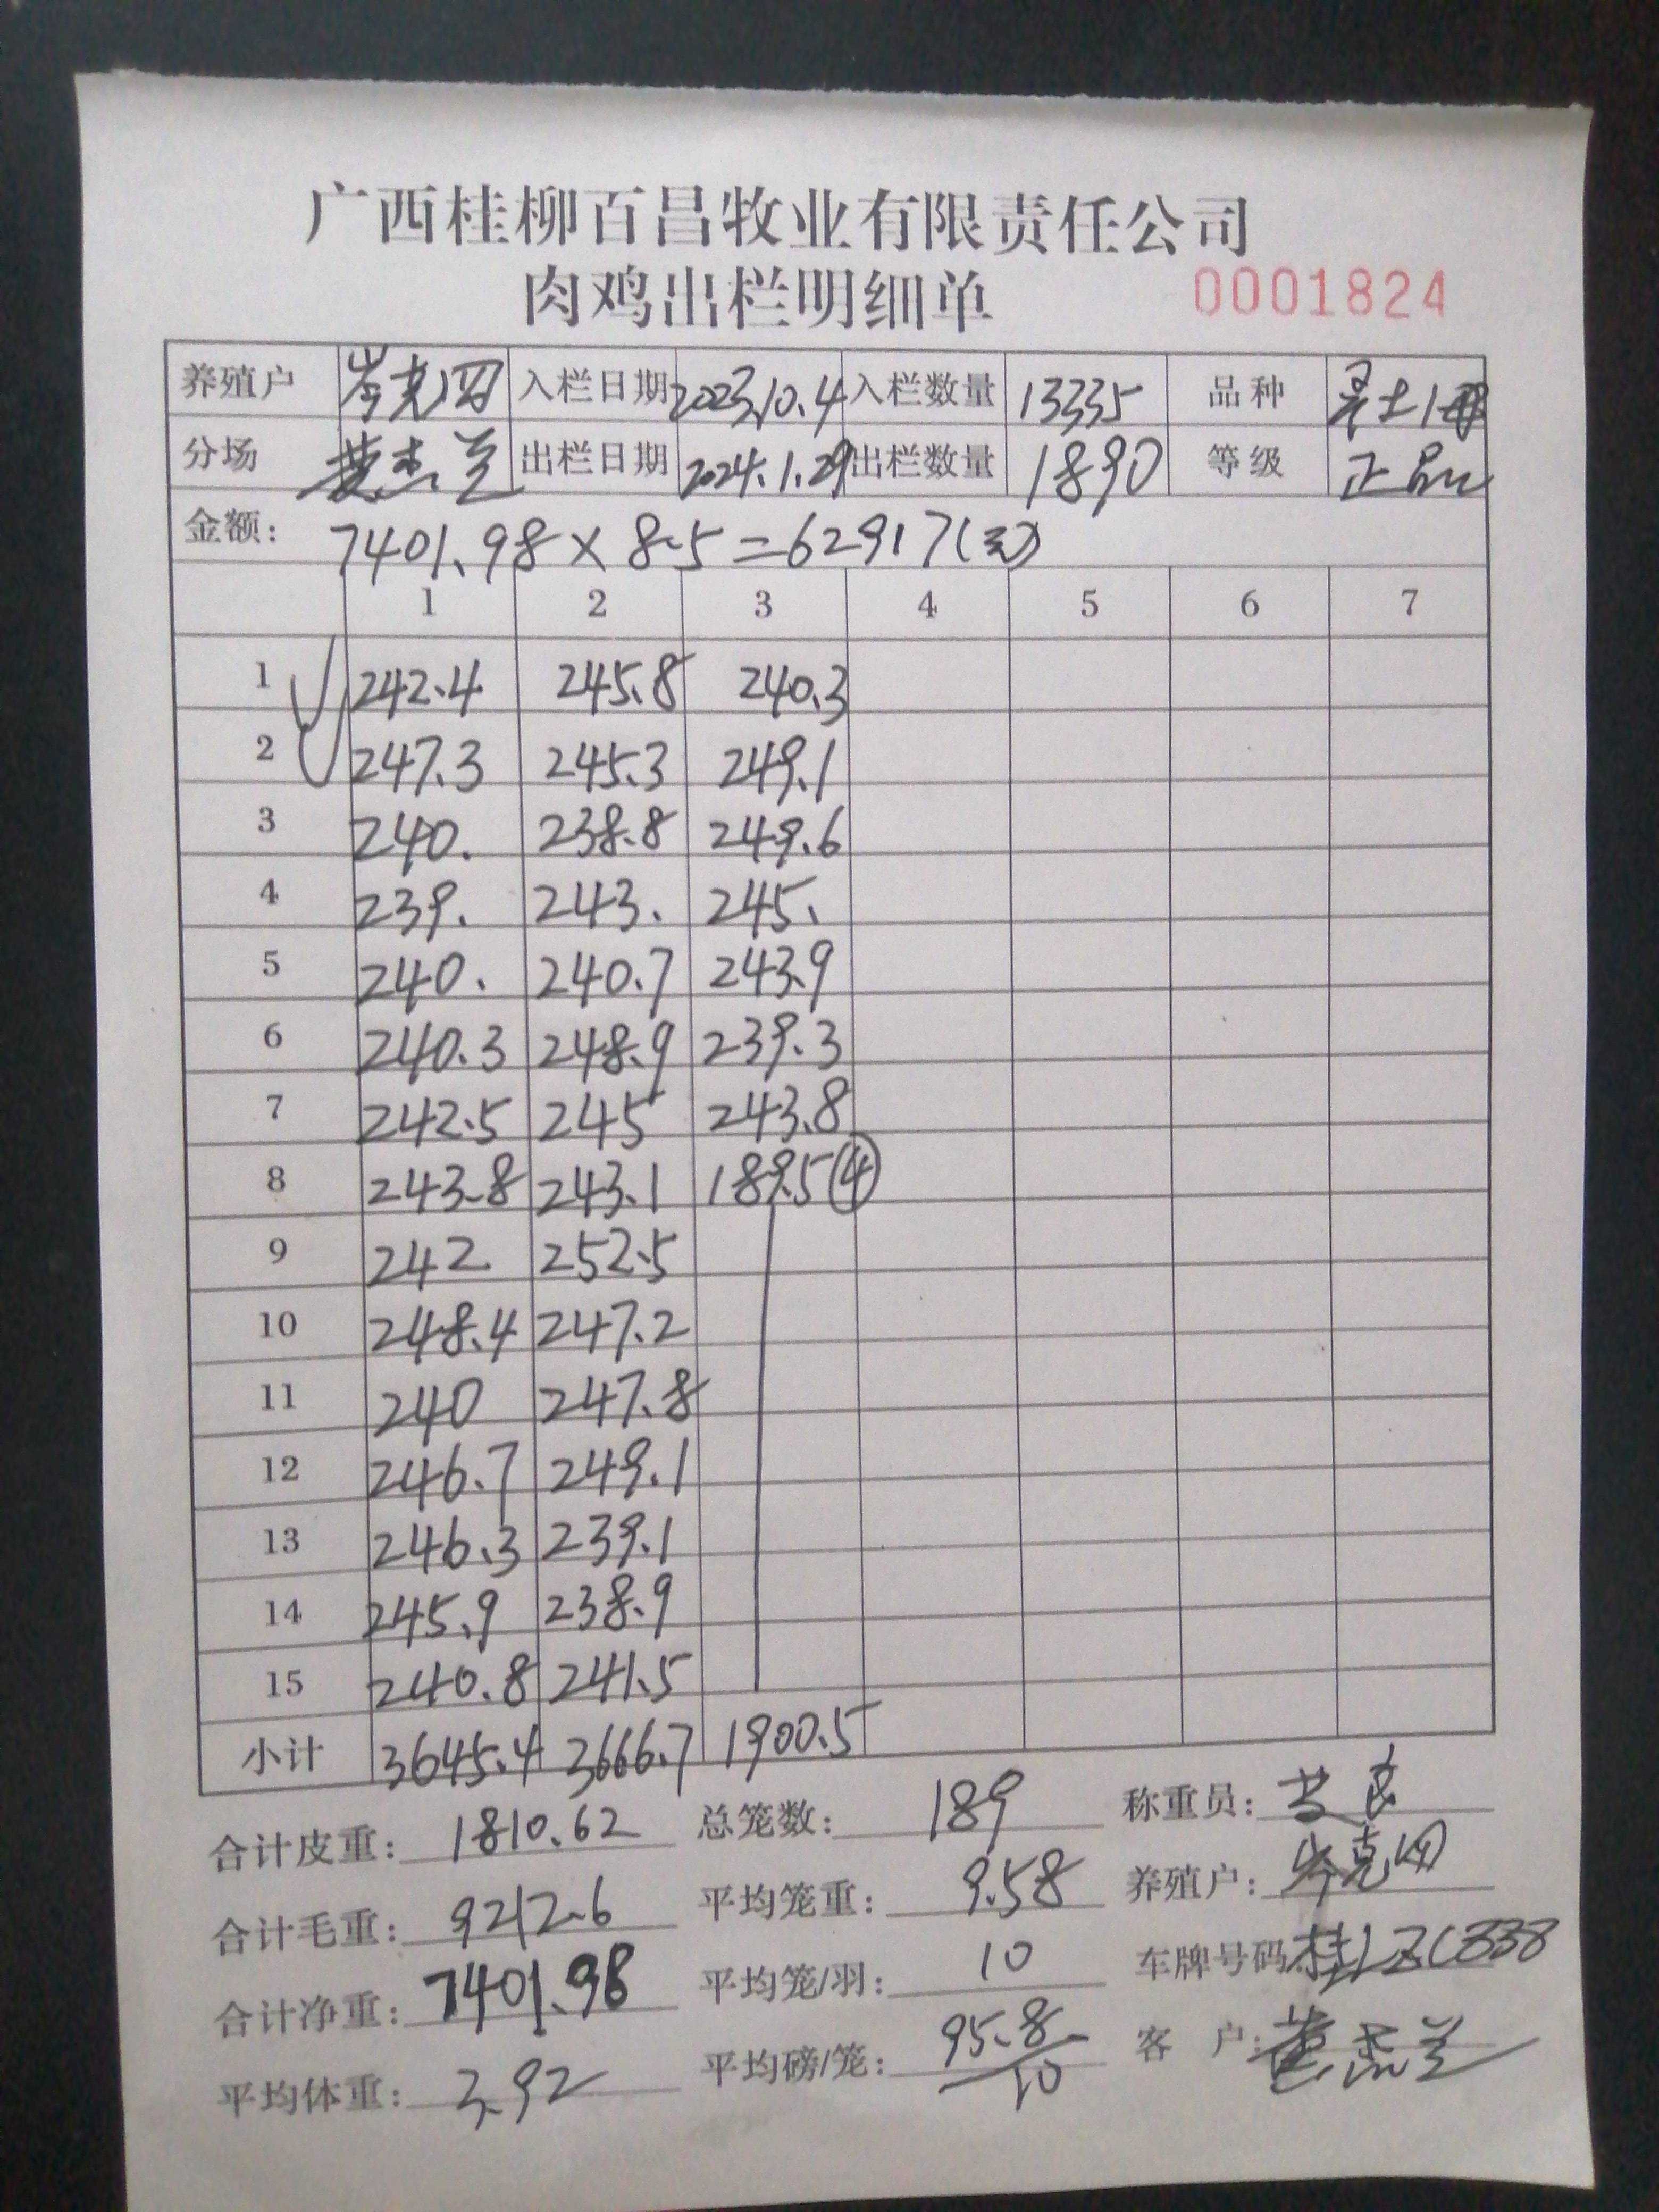 广西桂柳百昌牧业有限责任公司
肉鸡出栏明细单 0001824
养殖户 岑克四 入栏日期 2023.10.4 入栏数量 13335 品种 土1母
分场 黄杰兰 出栏日期 2024.1.29 出栏数量 1890 等级 正品
金额: 7401.98×8.5=62917(元)
1 2 3 4 5 6 7
1 242.4 245.8 240.3
2 247.3 245.3 249.1
3 240. 238.8 249.6
4 239. 243. 245.
5 240. 240.7 243.9
6 240.3 248.9 239.3
7 242.5 245 243.8
8 243.8 243.1 189.5④
9 242 252.5
10 248.4 247.2
11 240 247.8
12 246.7 249.1
13 246.3 239.1
14 245.9 238.9
15 240.8 241.5
小计 3645.4 3666.7 1900.5
合计皮重: 1810.62 总笼数: 189 称重员:
合计毛重: 9212.6 平均笼重: 9.58 养殖户: 岑克四
合计净重: 7401.98 平均笼/羽: 10 车牌号码: 桂LZC838
平均体重: 3.92 平均磅/笼: 95.8/10 客户: 黄杰兰